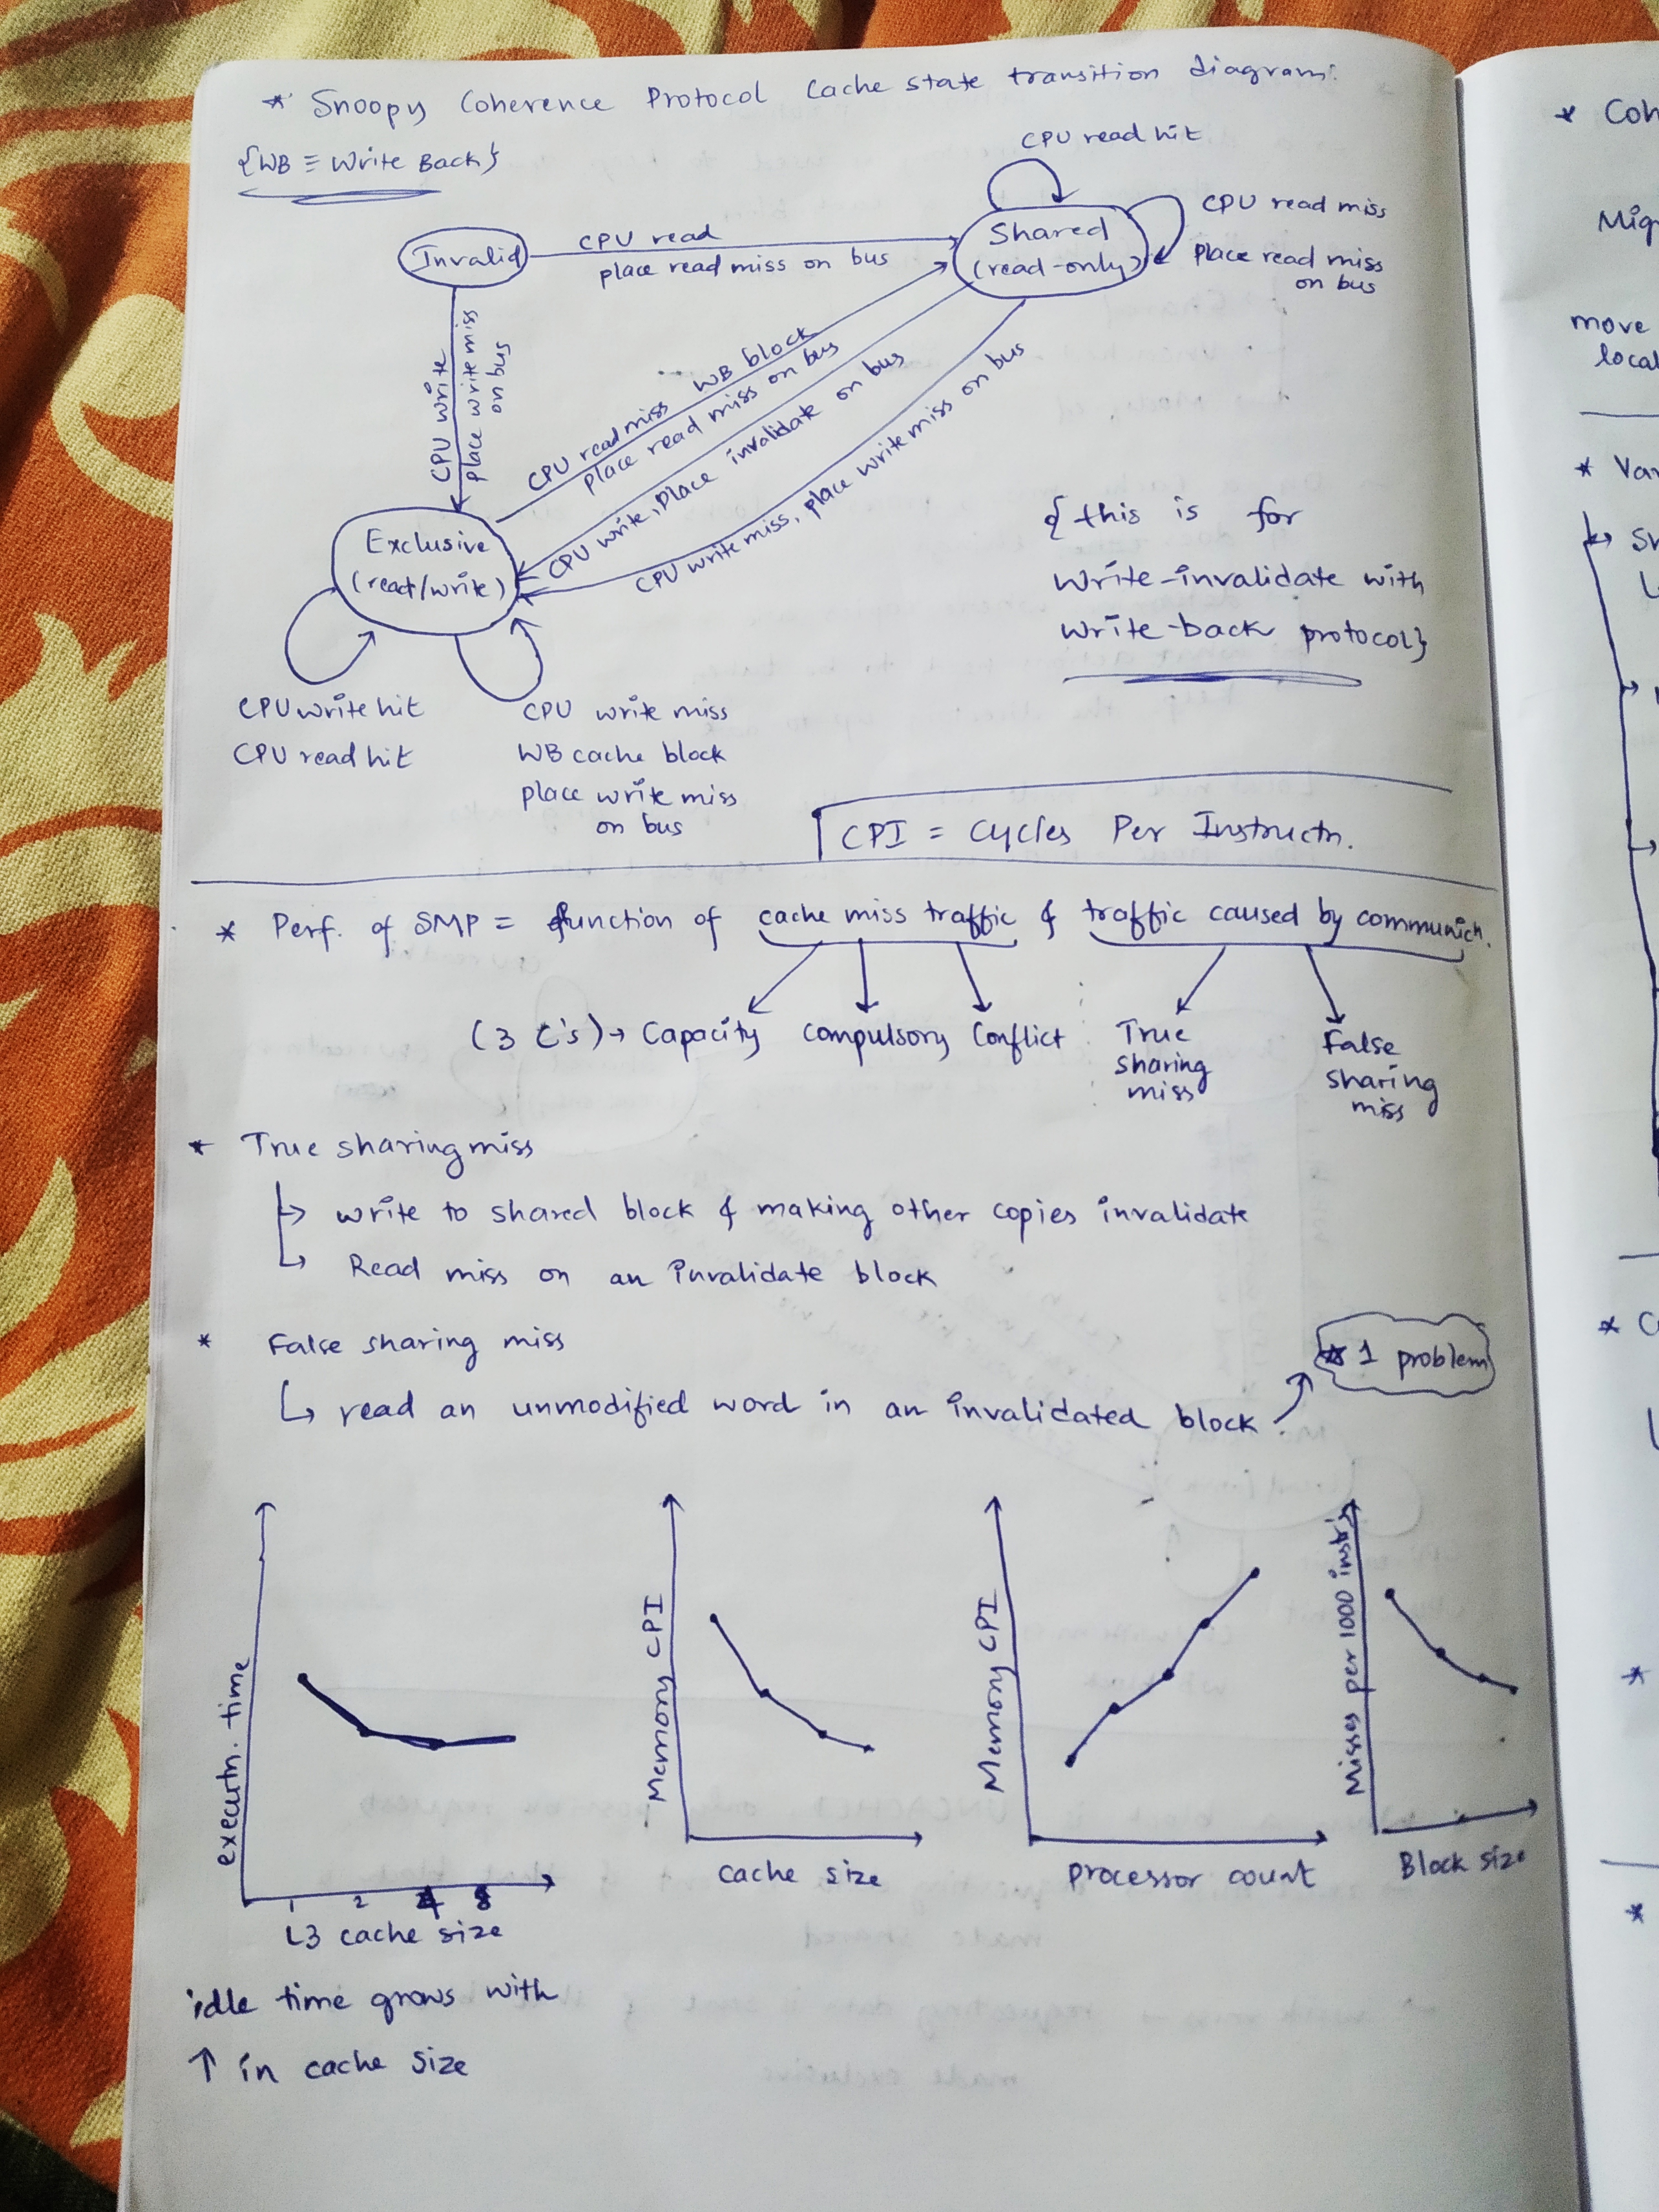 * Snoopy Coherence Protocol Cache state transition diagram:
{WB ≡ Write Back}
CPU read hit
Invalid
CPU read
place read miss on bus
Shared
(read-only)
CPU read miss
Place read miss
on bus
CPU write
place write miss
on bus
CPU read miss WB block
place read miss on bus
CPU write, Place invalidate on bus
CPU write miss, place write miss on bus
Exclusive
(read/write)
{this is for
Write-invalidate with
Write-back protocol}
CPU write hit
CPU read hit
CPU write miss
WB cache block
place write miss
on bus
CPI = Cycles Per Instructn.
* Perf. of SMP = function of cache miss traffic & traffic caused by communicn.
(3 C's) → Capacity Compulsory Conflict
True
sharing
miss
False
sharing
miss
* True sharing miss
↳ write to shared block & making other copies invalidate
↳ Read miss on an invalidate block
* False sharing miss
* 1 problem
↳ read an unmodified word in an invalidated block
executn. time
1 2 4 8
L3 cache size
Memory CPI
cache size
Memory CPI
processor count
Misses per 1000 instr.
Block size
idle time grows with
↑ in cache size
* Coh
Mig
move
local
* Var